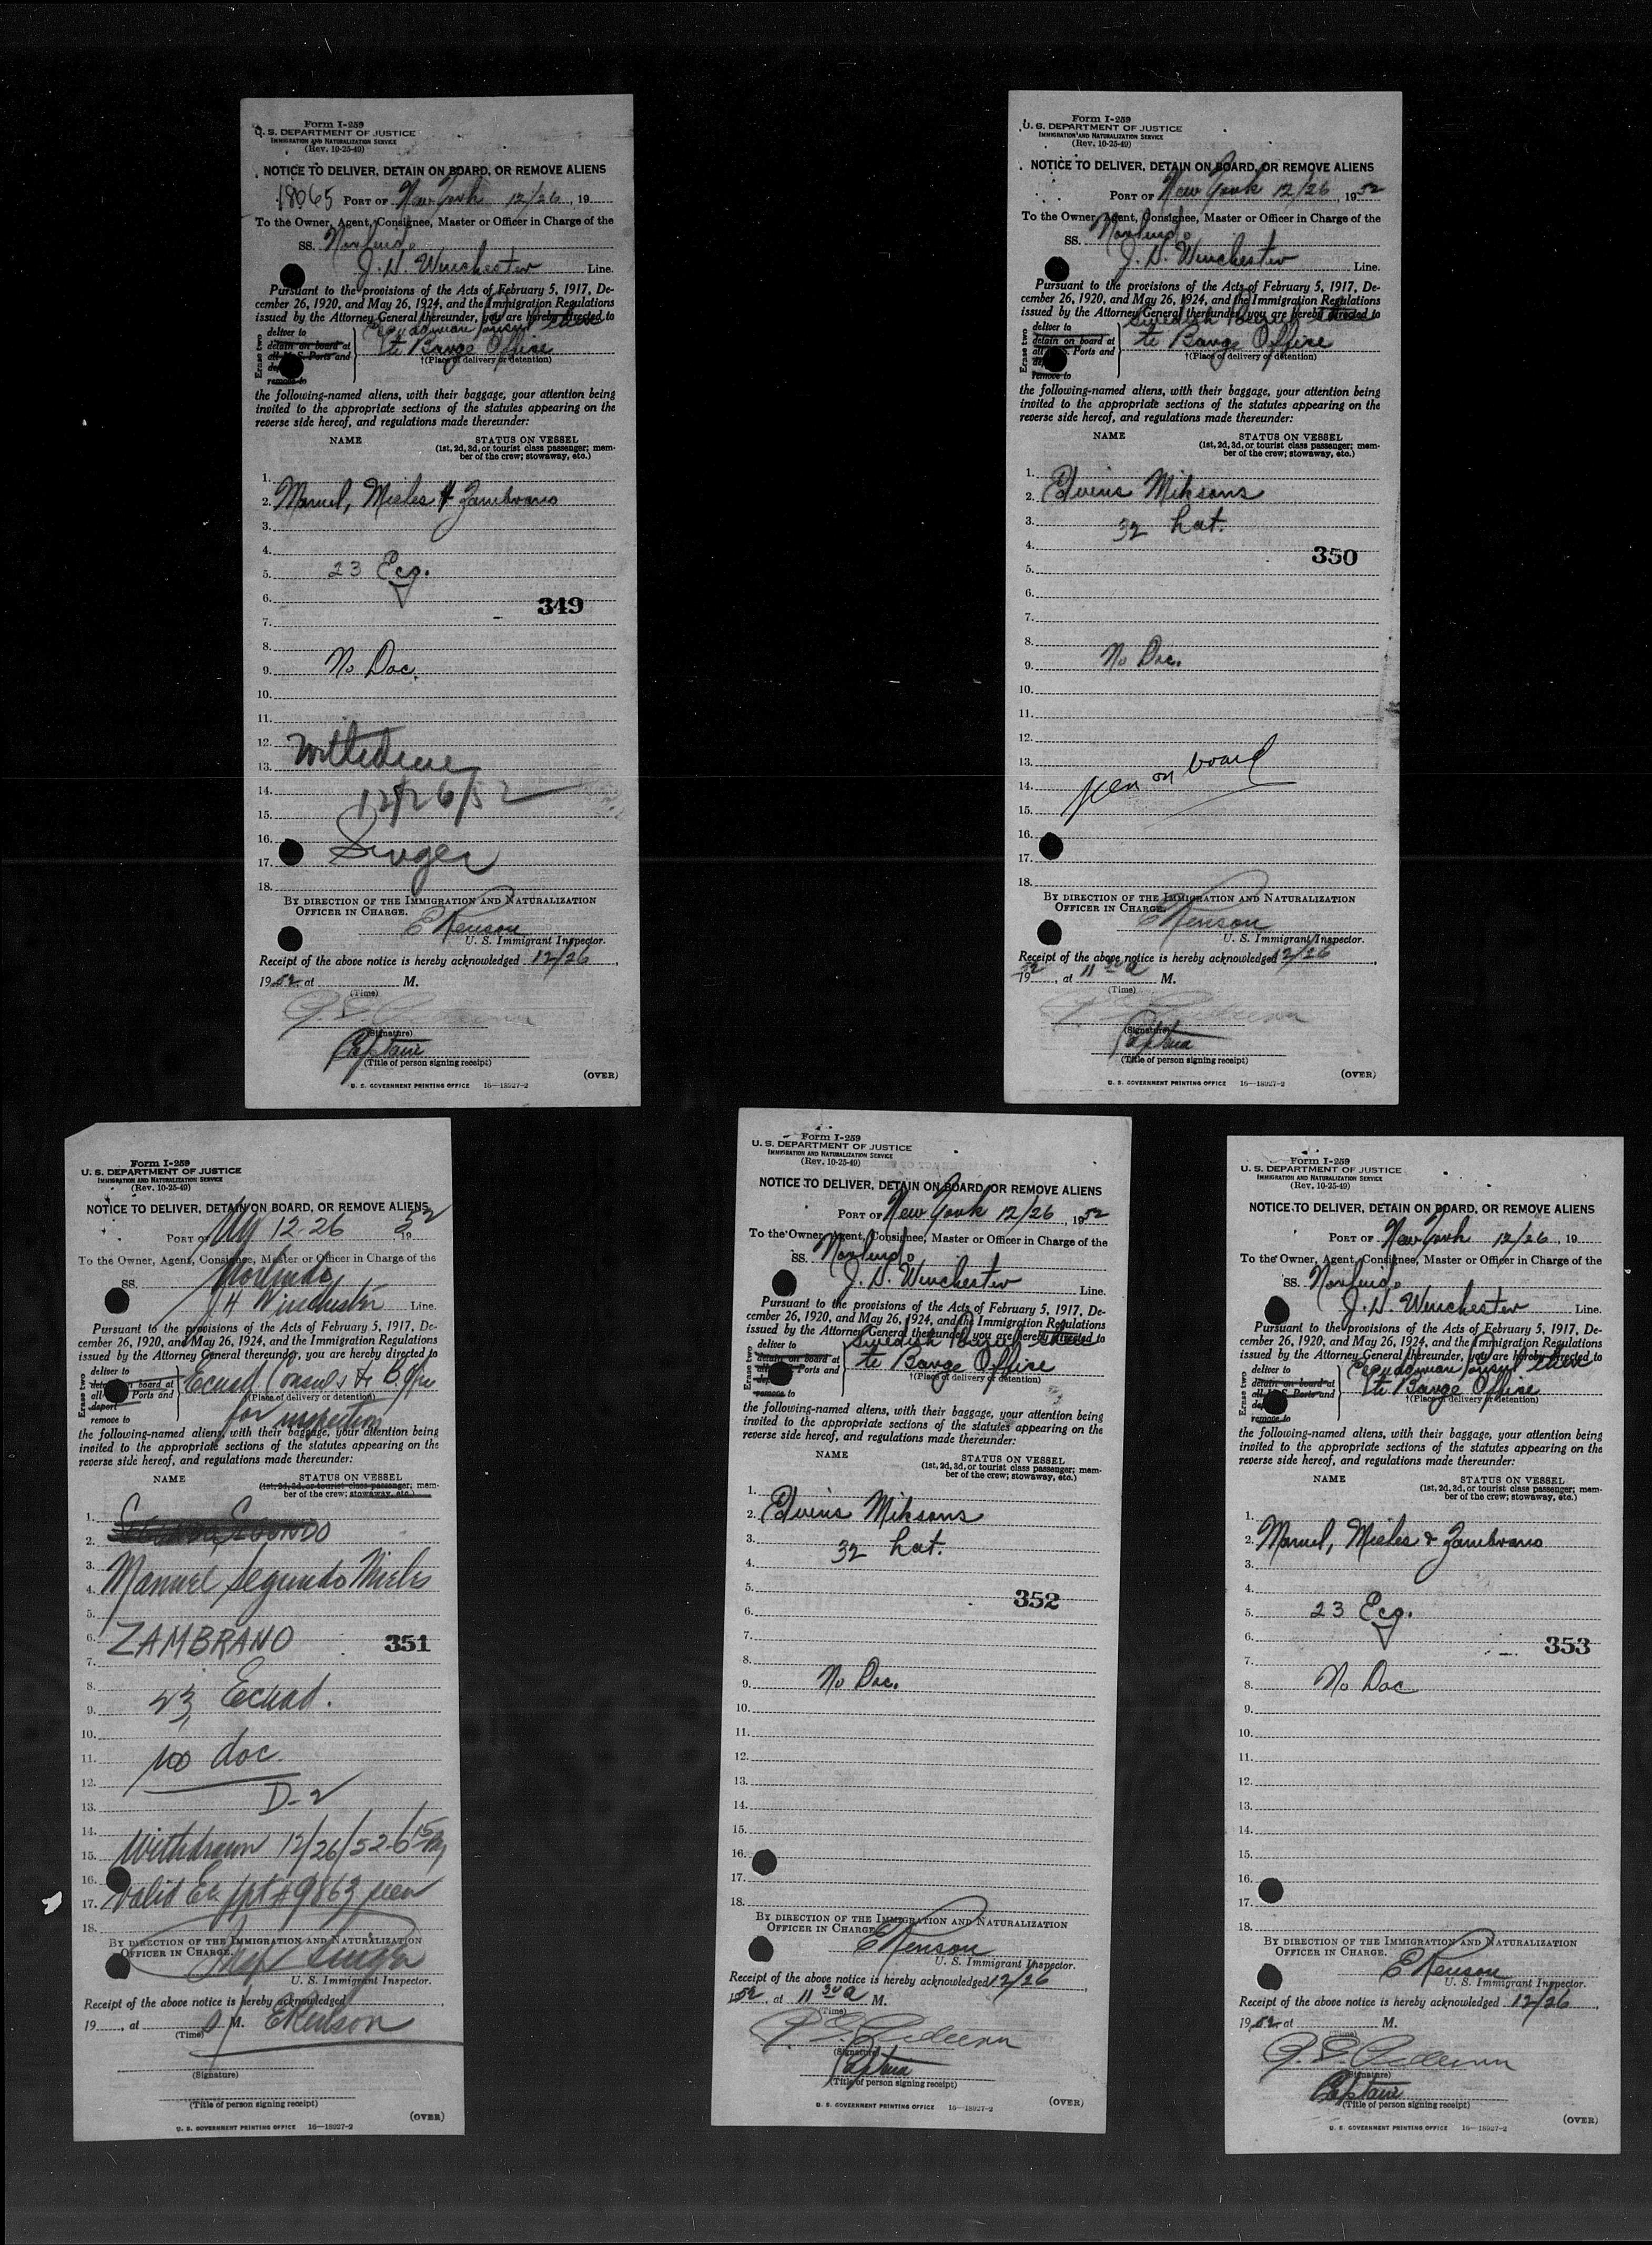 Form I-259
U. S. DEPARTMENT OF JUSTICE
IMMIGRATION AND NATURALIZATION SERVICE
(Rev. 10-25-49)
NOTICE TO DELIVER, DETAIN ON BOARD, OR REMOVE ALIENS
18065 PORT OF New York 12/26, 19
To the Owner, Agent, Consignee, Master or Officer in Charge of the
SS. Norlindo
J. H. Winchester Line.
Pursuant to the provisions of the Acts of February 5, 1917, De-
cember 26, 1920, and May 26, 1924, and the Immigration Regulations
issued by the Attorney General thereunder, you are hereby directed to
Erase two
deliver to
detain on board at
all U. S. Ports and
remove to
Ecuadorian Consul then
to Barge Office
†(Place of delivery or detention)
the following-named aliens, with their baggage, your attention being
invited to the appropriate sections of the statutes appearing on the
reverse side hereof, and regulations made thereunder:
NAME STATUS ON VESSEL
(1st, 2d, 3d, or tourist class passenger; mem-
ber of the crew; stowaway, etc.)
1.
2. Manuel, Mieles Zambrano
3.
4.
5. 23 Ecq.
6.
349
7.
8.
9. No Doc.
10.
11.
12.
13. Withdrew
14. 12/26/52
15.
16.
17. Singer
18.
BY DIRECTION OF THE IMMIGRATION AND NATURALIZATION
OFFICER IN CHARGE.
E Renson
U. S. Immigrant Inspector.
Receipt of the above notice is hereby acknowledged 12/26,
1952 at M.
(Time)
(Signature)
Captain
(Title of person signing receipt)
(OVER)
U. S. GOVERNMENT PRINTING OFFICE 16—18927-2
Form I-259
U. S. DEPARTMENT OF JUSTICE
IMMIGRATION AND NATURALIZATION SERVICE
(Rev. 10-25-49)
NOTICE TO DELIVER, DETAIN ON BOARD, OR REMOVE ALIENS
PORT OF New York 12/26 1952
To the Owner, Agent, Consignee, Master or Officer in Charge of the
SS. Norlindo
J. H. Winchester Line.
Pursuant to the provisions of the Acts of February 5, 1917, De-
cember 26, 1920, and May 26, 1924, and the Immigration Regulations
issued by the Attorney General thereunder, you are hereby directed to
Erase two
deliver to
detain on board at
all Ports and
remove to
Swedish then
to Barge Office
†(Place of delivery or detention)
the following-named aliens, with their baggage, your attention being
invited to the appropriate sections of the statutes appearing on the
reverse side hereof, and regulations made thereunder:
NAME STATUS ON VESSEL
(1st, 2d, 3d, or tourist class passenger; mem-
ber of the crew; stowaway, etc.)
1.
2. Edvins Miksons
3. 32 Lat.
4.
350
5.
6.
7.
8.
9. No Doc.
10.
11.
12.
13.
14. seen on board
15.
16.
17.
18.
BY DIRECTION OF THE IMMIGRATION AND NATURALIZATION
OFFICER IN CHARGE.
E Renson
U. S. Immigrant Inspector.
Receipt of the above notice is hereby acknowledged 12/26,
1952, at 11 30 a M.
(Time)
(Signature)
Captain
(Title of person signing receipt)
(OVER)
U. S. GOVERNMENT PRINTING OFFICE 16—18927-2
Form I-259
U. S. DEPARTMENT OF JUSTICE
IMMIGRATION AND NATURALIZATION SERVICE
(Rev. 10-25-49)
NOTICE TO DELIVER, DETAIN ON BOARD, OR REMOVE ALIENS
PORT OF NY 12-26 1952
To the Owner, Agent, Consignee, Master or Officer in Charge of the
SS. Norlindo
J H Winchester Line.
Pursuant to the provisions of the Acts of February 5, 1917, De-
cember 26, 1920, and May 26, 1924, and the Immigration Regulations
issued by the Attorney General thereunder, you are hereby directed to
Erase two
deliver to
detain on board at
all Ports and
deport
remove to
Ecuad Consul & B. Office
(Place of delivery or detention)
for inspection
the following-named aliens, with their baggage, your attention being
invited to the appropriate sections of the statutes appearing on the
reverse side hereof, and regulations made thereunder:
NAME STATUS ON VESSEL
(1st, 2d, 3d, or tourist class passenger; mem-
ber of the crew; stowaway, etc.)
1.
2.
3.
4. Manuel Segundo Mieles
5.
6. ZAMBRANO 351
7.
8.
9. 23 Ecuad.
10.
11. no doc.
12.
13. D-2
14.
15. Withdrawn 12/26/52-6 15 PM
16.
17. Valid Ec. ppt #9863 seen
18.
BY DIRECTION OF THE IMMIGRATION AND NATURALIZATION
OFFICER IN CHARGE.
Singer
U. S. Immigrant Inspector.
Receipt of the above notice is hereby acknowledged
19, at M. E Renson
(Time)
(Signature)
(Title of person signing receipt)
(OVER)
U. S. GOVERNMENT PRINTING OFFICE 16—18927-2
Form I-259
U. S. DEPARTMENT OF JUSTICE
IMMIGRATION AND NATURALIZATION SERVICE
(Rev. 10-25-49)
NOTICE TO DELIVER, DETAIN ON BOARD, OR REMOVE ALIENS
PORT OF New York 12/26, 1952
To the Owner, Agent, Consignee, Master or Officer in Charge of the
SS. Norlindo
J. H. Winchester Line.
Pursuant to the provisions of the Acts of February 5, 1917, De-
cember 26, 1920, and May 26, 1924, and the Immigration Regulations
issued by the Attorney General thereunder, you are hereby directed to
Erase two
deliver to
detain on board at
all Ports and
remove to
Swedish then
to Barge Office
†(Place of delivery or detention)
the following-named aliens, with their baggage, your attention being
invited to the appropriate sections of the statutes appearing on the
reverse side hereof, and regulations made thereunder:
NAME STATUS ON VESSEL
(1st, 2d, 3d, or tourist class passenger; mem-
ber of the crew; stowaway, etc.)
1.
2. Edvins Miksons
3. 32 Lat.
4.
5.
352
6.
7.
8.
9. No Doc.
10.
11.
12.
13.
14.
15.
16.
17.
18.
BY DIRECTION OF THE IMMIGRATION AND NATURALIZATION
OFFICER IN CHARGE.
E Renson
U. S. Immigrant Inspector.
Receipt of the above notice is hereby acknowledged 12/26
1952, at 11 30 a M.
(Time)
(Signature)
Captain
(Title of person signing receipt)
(OVER)
U. S. GOVERNMENT PRINTING OFFICE 16—18927-2
Form I-259
U. S. DEPARTMENT OF JUSTICE
IMMIGRATION AND NATURALIZATION SERVICE
(Rev. 10-25-49)
NOTICE TO DELIVER, DETAIN ON BOARD, OR REMOVE ALIENS
PORT OF New York 12/26, 19
To the Owner, Agent, Consignee, Master or Officer in Charge of the
SS. Norlindo
J. H. Winchester Line.
Pursuant to the provisions of the Acts of February 5, 1917, De-
cember 26, 1920, and May 26, 1924, and the Immigration Regulations
issued by the Attorney General thereunder, you are hereby directed to
Erase two
deliver to
detain on board at
all U. S. Ports and
remove to
Ecuadorian Consul then
to Barge Office
†(Place of delivery or detention)
the following-named aliens, with their baggage, your attention being
invited to the appropriate sections of the statutes appearing on the
reverse side hereof, and regulations made thereunder:
NAME STATUS ON VESSEL
(1st, 2d, 3d, or tourist class passenger; mem-
ber of the crew; stowaway, etc.)
1.
2. Manuel, Mieles & Zambrano
3.
4.
5. 23 Ecq.
6.
353
7.
8. No Doc
9.
10.
11.
12.
13.
14.
15.
16.
17.
18.
BY DIRECTION OF THE IMMIGRATION AND NATURALIZATION
OFFICER IN CHARGE.
E Renson
U. S. Immigrant Inspector.
Receipt of the above notice is hereby acknowledged 12/26,
1952 at M.
(Time)
(Signature)
Captain
(Title of person signing receipt)
(OVER)
U. S. GOVERNMENT PRINTING OFFICE 16—18927-2